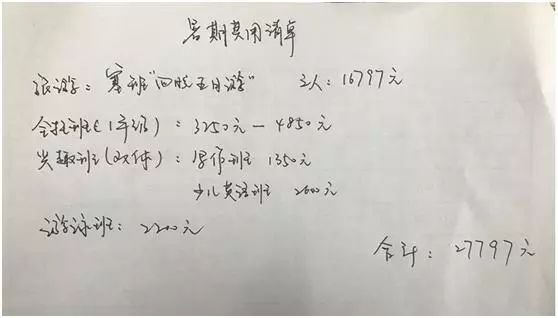 暑期费用清单
旅游: 塞班"四晚五日游" 三人: 16797元
全托班(1年级): 3250元—4850元
兴趣班(文体): 写作班 1350元
少儿英语班 2600元
游泳班: 2200元
合计: 27797元